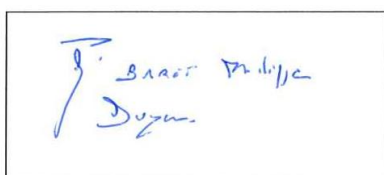 BARET Philippe
Doyen